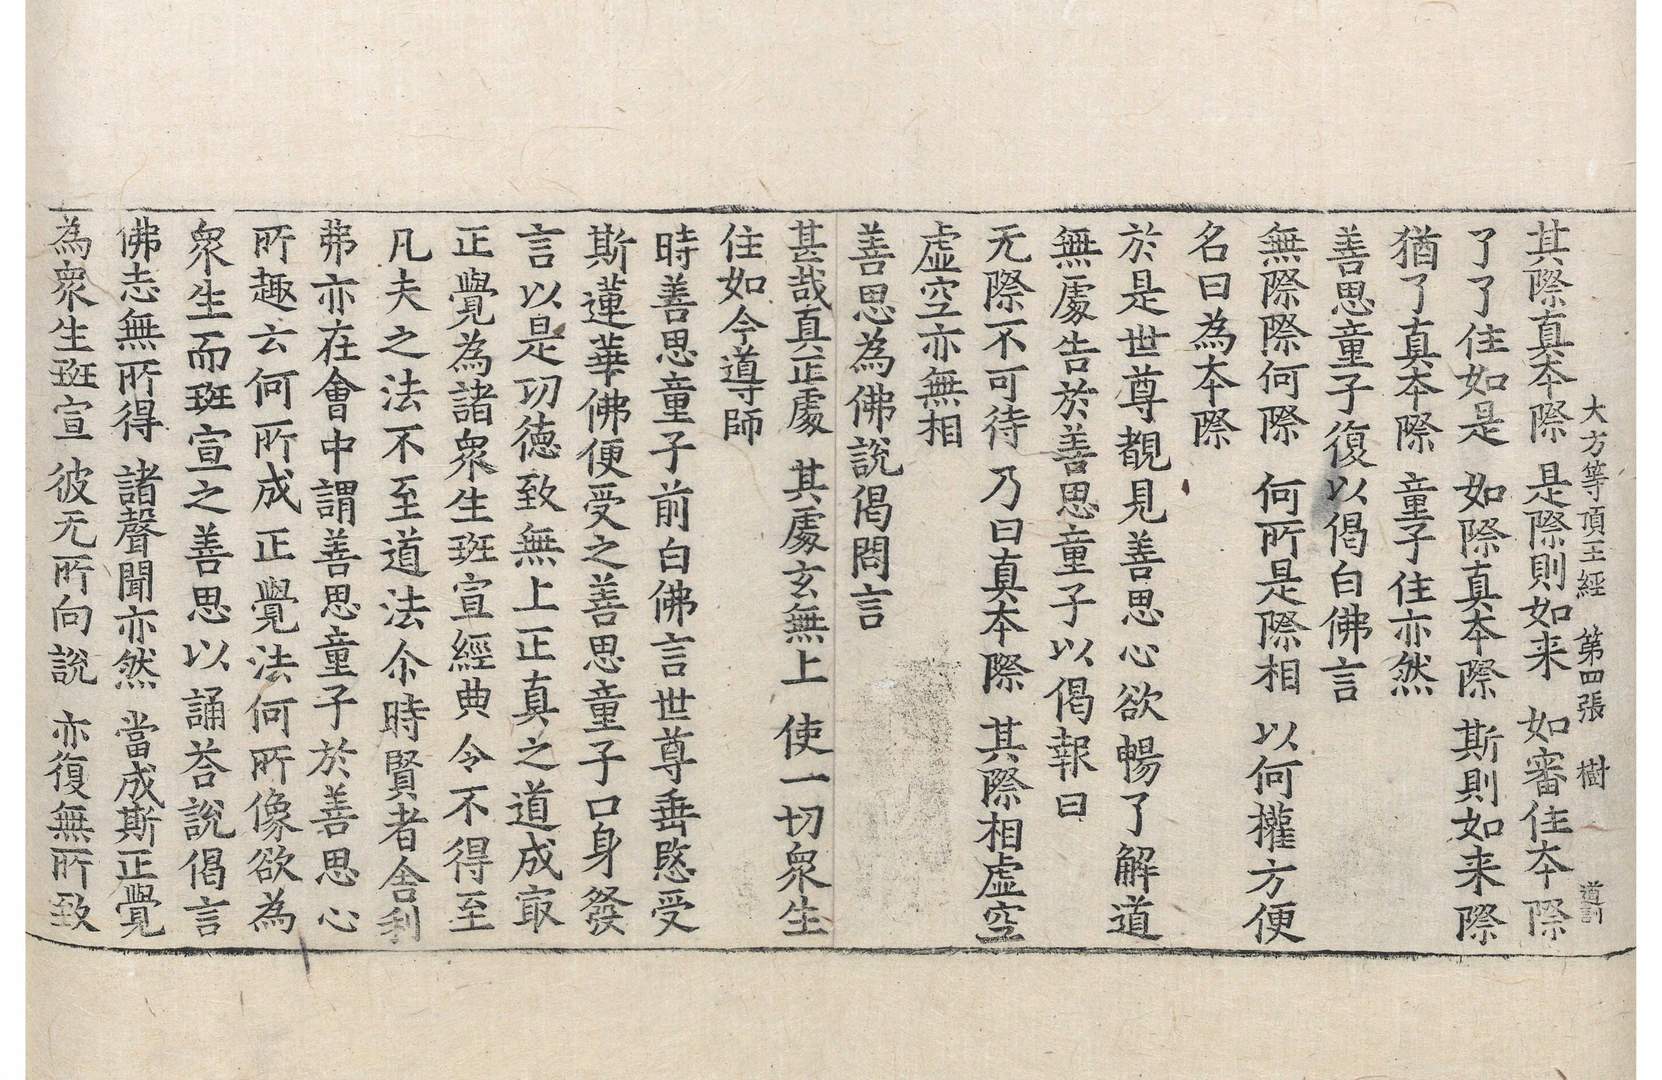 大方等頂王經 第四張 樹 道訓
其際真本際 是際則如来 如審住本際
了了住如是 如際真本際 斯則如来際
猶了真本際 童子住亦然
善思童子復以偈白佛言
無際際何際 何所是際相 以何權方便
名曰為本際
於是世尊覩見善思心欲暢了解道
無處告於善思童子以偈報曰
无際不可待 乃曰真本際 其際相虚空
虚空亦無相
善思為佛說偈問言
甚哉真正處 其處玄無上 使一切衆生
住如今導師
時善思童子前白佛言世尊垂愍受
斯蓮華佛便受之善思童子口身發
言以是功德致無上正真之道成㝡
正覺為諸衆生班宣經典令不得至
凡夫之法不至道法尒時賢者舍利
弗亦在會中謂善思童子於善思心
所趣云何所成正覺法何所像欲為
衆生而班宣之善思以誦荅說偈言
佛志無所得 諸聲聞亦然 當成斯正覺
為衆生班宣 彼无所向說 亦復無所致